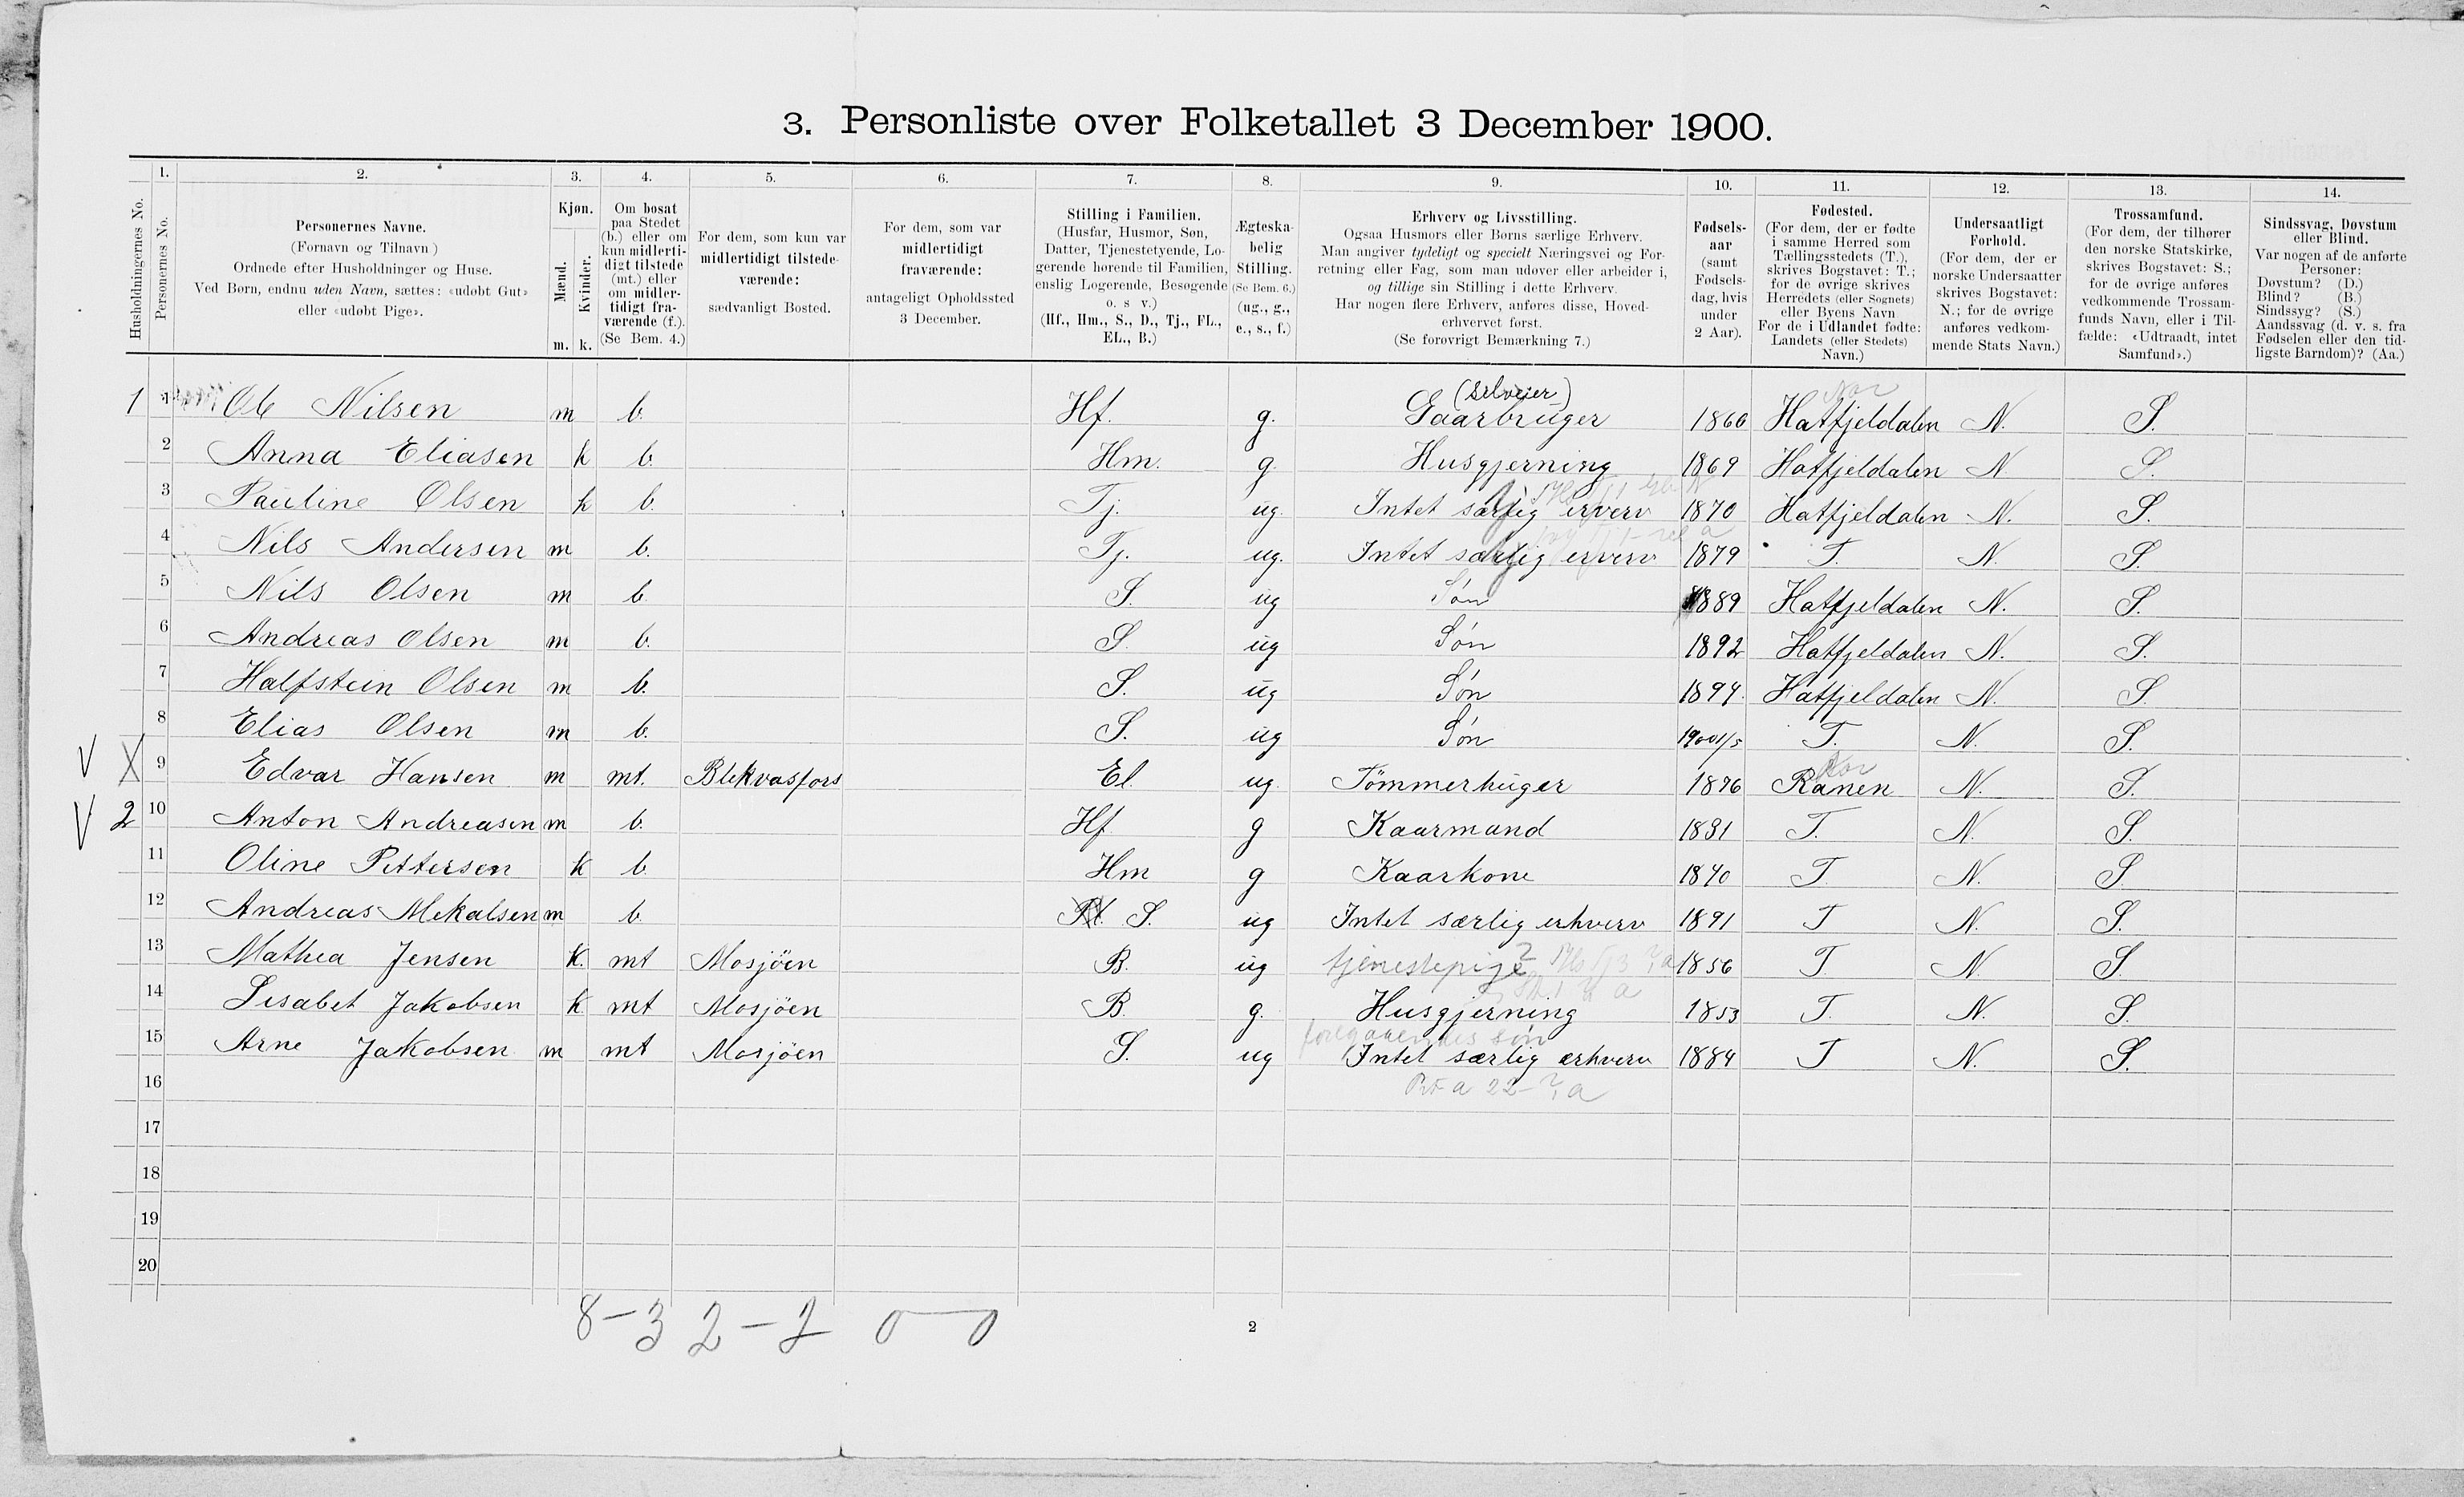 3. Personliste over Folketallet 3 December 1900.
1. 2. 3. 4. 5. 6. 7. 8. 9. 10. 11. 12. 13. 14.
Husholdningernes No.
Personernes No.
Personernes Navne.
(Fornavn og Tilnavn)
Ordnede efter Husholdninger og Huse.
Ved Børn, endnu uden Navn, sættes: «udøbt Gut»
eller «udøbt Pige».
Kjøn.
Mænd.
Kvinder.
m. k.
Om bosat
paa Stedet
(b.) eller om
kun midlerti-
digt tilstede
(mt.) eller
om midler-
tidigt fra-
værende (f.).
(Se Bem. 4.)
For dem, som kun var
midlertidigt tilstede-
værende:
sædvanligt Bosted.
For dem, som var
midlertidigt
fraværende:
antageligt Opholdssted
3 December.
Stilling i Familien.
(Husfar, Husmor, Søn,
Datter, Tjenestetyende, Lo-
gerende hørende til Familien,
enslig Logerende, Besøgende
o. s v.)
(Hf., Hm., S., D., Tj., FL.,
EL., B.)
Ægteska-
belig
Stilling.
(Se Bem. 6.)
(ug., g.,
e., s., f.)
Erhverv og Livsstilling.
Ogsaa Husmors eller Børns særlige Erhverv.
Man angiver tydeligt og specielt Næringsvei og For-
retning eller Fag, som man udøver eller arbeider i,
og tillige sin Stilling i dette Erhverv.
Har nogen flere Erhverv, anføres disse, Hoved-
erhvervet først.
(Se forøvrigt Bemærkning 7.)
Fødsels-
aar
(samt
Fødsels-
dag, hvis
under
2 Aar).
Fødested.
(For dem, der er fødte
i samme Herred som
Tællingsstedets (T.),
skrives Bogstavet: T.;
for de øvrige skrives
Herredets (eller Sognets)
eller Byens Navn
For de i Udlandet fødte:
Landets (eller Stedets)
Navn.)
Undersaatligt
Forhold.
(For dem, der er
norske Undersaatter
skrives Bogstavet:
N.; for de øvrige
anføres vedkom-
mende Stats Navn.)
Trossamfund.
(For dem, der tilhører
den norske Statskirke,
skrives Bogstavet: S.;
for de øvrige anføres
vedkommende Trossam-
funds Navn, eller i Til-
fælde: «Udtraadt, intet
Samfund».)
Sindssvag, Døvstum
eller Blind.
Var nogen af de anførte
Personer:
Døvstum? (D.)
Blind? (B.)
Sindssyg? (S.)
Aandssvag (d. v. s. fra
Fødselen eller den tid-
ligste Barndom)? (Aa.)
(selveier) Nor
1 1 Ole Nilsen m b. Hf. g. Gaarbruger 1860 Hatfjeldalen N. S.
2 Anna Eliasen k b. Hm. g. Husgjerning 1869 Hatfjeldalen N S.
3 Pauline Olsen k b. Tj. ug. Intet særlig erverv 1870 Hatfjeldalen N. S.
4 Nils Andersen m b. Tj. ug. Intet særlig erverv 1879 T. N. S.
5 Nils Olsen m b. S. ug Søn 1889 Hatfjeldalen N. S.
6 Andreas Olsen m b. S. ug Søn 1892 Hatfjeldalen N. S.
7 Halfstein Olsen m b. S. ug Søn 1894. Hatfjeldalen N. S
8 Elias Olsen m b. S. ug Søn 1900 1/5 T. N. S.
Nor
V X 9 Edvar Hansen m mt. Blekvasfors El. ug. Tömmerhuger 1876 Ranen N. S.
V 2 10 Anton Andreasen m b. Hf g Kaarmand 1831 T. N. S.
11 Oline Pettersen k b. Hm g Kaarkone 1840 T N. S.
12 Andreas Mekalsen m b. S. ug Intet særlig erhverv 1891 T N. S.
13 Mathea Jensen k. mt Mosjöen B. ug tjenestepige 1856 T. N. S.
14 Lisabet Jakobsen k mt Mosjöen B. g. Husgjerning 1853 T. N. S.
foregaaendes søn
15 Arne Jakobsen m mt Mosjöen S. ug Intet særlig erhverv 1884 T N. S.
16
17
18
19
20
8 - 3 2 - 2 0 - 0
2